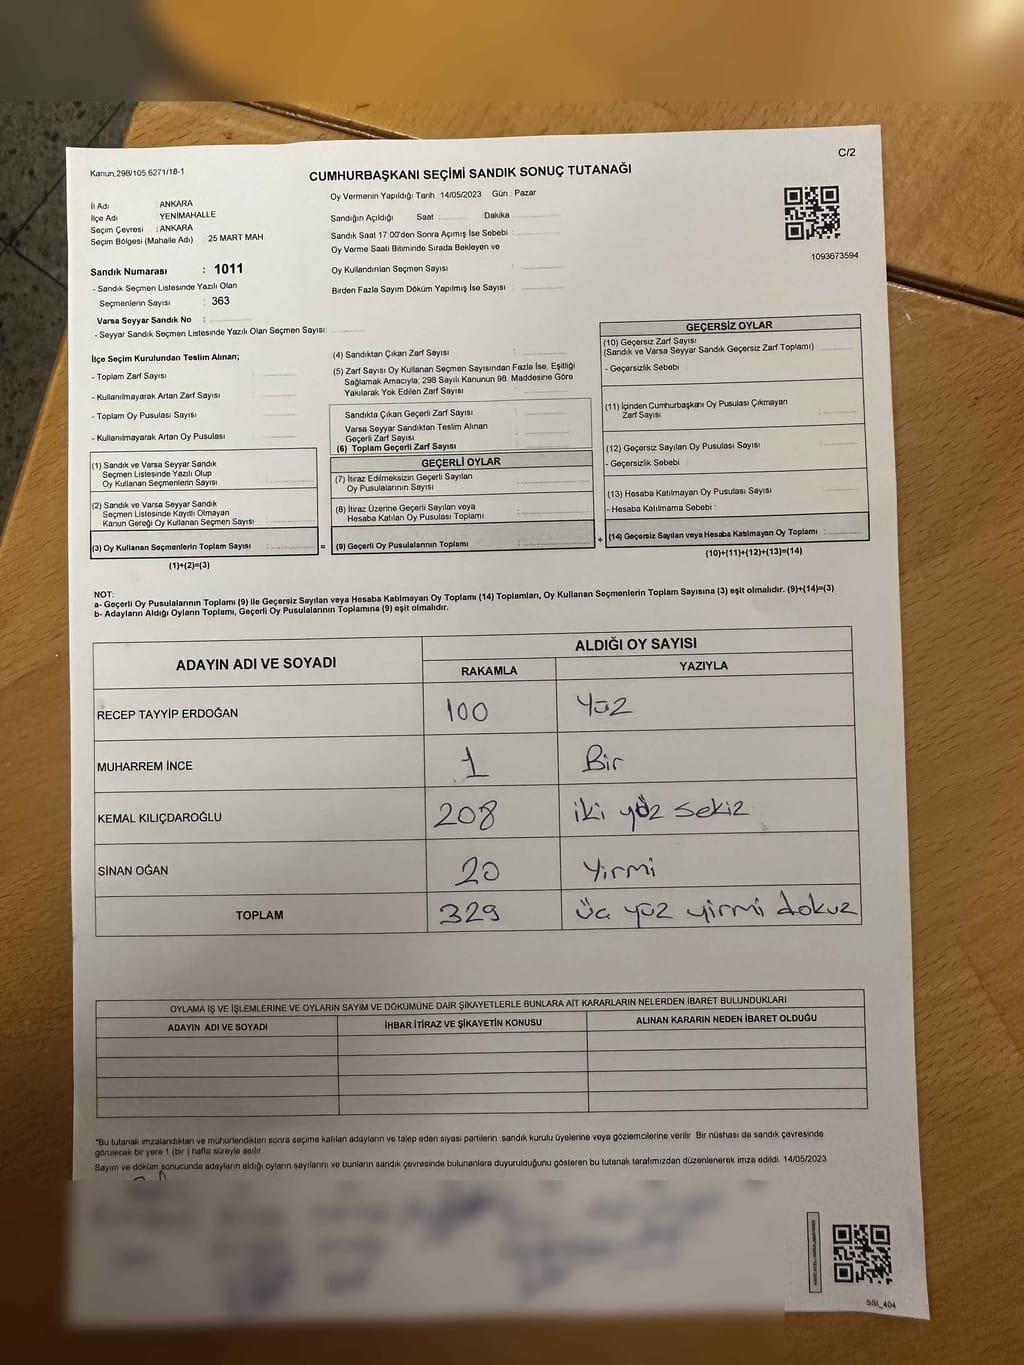 C/2
Kanun,298/105,6271/18-1
CUMHURBAŞKANI SEÇİMİ SANDIK SONUÇ TUTANAĞI
İl Adı : ANKARA
İlçe Adı : YENİMAHALLE
Seçim Çevresi : ANKARA
Seçim Bölgesi (Mahalle Adı) : 25 MART MAH
Oy Vermenin Yapıldığı Tarih : 14/05/2023 Gün : Pazar
Sandığın Açıldığı Saat : Dakika
Sandık Saat 17:00'den Sonra Açımış İse Sebebi :
Oy Verme Saati Bitiminde Sırada Bekleyen ve
Oy Kullandırılan Seçmen Sayısı :
Birden Fazla Sayım Döküm Yapılmış İse Sayısı :
1093673594
Sandık Numarası : 1011
- Sandık Seçmen Listesinde Yazılı Olan
Seçmenlerin Sayısı : 363
Varsa Seyyar Sandık No :
- Seyyar Sandık Seçmen Listesinde Yazılı Olan Seçmen Sayısı:
İlçe Seçim Kurulundan Teslim Alınan;
- Toplam Zarf Sayısı :
- Kullanılmayarak Artan Zarf Sayısı :
- Toplam Oy Pusulası Sayısı :
- Kullanılmayarak Artan Oy Pusulası :
(1) Sandık ve Varsa Seyyar Sandık
Seçmen Listesinde Yazılı Olup
Oy Kullanan Seçmenlerin Sayısı :
(2) Sandık ve Varsa Seyyar Sandık
Seçmen Listesinde Kayıtlı Olmayan
Kanun Gereği Oy Kullanan Seçmen Sayısı :
(3) Oy Kullanan Seçmenlerin Toplam Sayısı : =
(1)+(2)=(3)
(4) Sandıktan Çıkan Zarf Sayısı :
(5) Zarf Sayısı Oy Kullanan Seçmen Sayısından Fazla İse, Eşitliği
Sağlamak Amacıyla, 298 Sayılı Kanunun 98. Maddesine Göre
Yakılarak Yok Edilen Zarf Sayısı :
Sandıkta Çıkan Geçerli Zarf Sayısı :
Varsa Seyyar Sandıktan Teslim Alınan
Geçerli Zarf Sayısı :
(6) Toplam Geçerli Zarf Sayısı :
GEÇERLİ OYLAR
(7) İtiraz Edilmeksizin Geçerli Sayılan
Oy Pusulalarının Sayısı :
(8) İtiraz Üzerine Geçerli Sayılan veya
Hesaba Katılan Oy Pusulası Toplamı :
(9) Geçerli Oy Pusulalarının Toplamı : +
GEÇERSİZ OYLAR
(10) Geçersiz Zarf Sayısı
(Sandık ve Varsa Seyyar Sandık Geçersiz Zarf Toplamı) :
- Geçersizlik Sebebi :
(11) İçinden Cumhurbaşkanı Oy Pusulası Çıkmayan
Zarf Sayısı :
(12) Geçersiz Sayılan Oy Pusulası Sayısı :
- Geçersizlik Sebebi :
(13) Hesaba Katılmayan Oy Pusulası Sayısı :
- Hesaba Katılmama Sebebi :
(14) Geçersiz Sayılan veya Hesaba Katılmayan Oy Toplamı :
(10)+(11)+(12)+(13)=(14)
NOT:
a- Geçerli Oy Pusulalarının Toplamı (9) ile Geçersiz Sayılan veya Hesaba Katılmayan Oy Toplamı (14) Toplamları, Oy Kullanan Seçmenlerin Toplam Sayısına (3) eşit olmalıdır. (9)+(14)=(3)
b- Adayların Aldığı Oyların Toplamı, Geçerli Oy Pusulalarının Toplamına (9) eşit olmalıdır.
ADAYIN ADI VE SOYADI ALDIĞI OY SAYISI
RAKAMLA YAZIYLA
RECEP TAYYİP ERDOĞAN 100 Yüz
MUHARREM İNCE 1 Bir
KEMAL KILIÇDAROĞLU 208 iki yüz sekiz
SİNAN OĞAN 20 Yirmi
TOPLAM 329 üç yüz yirmi dokuz
OYLAMA İŞ VE İŞLEMLERİNE VE OYLARIN SAYIM VE DÖKÜMÜNE DAİR ŞİKAYETLERLE BUNLARA AİT KARARLARIN NELERDEN İBARET BULUNDUKLARI
ADAYIN ADI VE SOYADI İHBAR İTİRAZ VE ŞİKAYETİN KONUSU ALINAN KARARIN NEDEN İBARET OLDUĞU
*Bu tutanak imzalandıktan ve mühürlendikten sonra seçime katılan adayların ve talep eden siyasi partilerin sandık kurulu üyelerine veya gözlemcilerine verilir. Bir nüshası da sandık çevresinde
görülecek bir yere 1 (bir) hafta süreyle asılır.
Sayım ve döküm sonucunda adayların aldığı oyların sayılarını ve bunların sandık çevresinde bulunanlara duyurulduğunu gösteren bu tutanak tarafımızdan düzenlenerek imza edildi. 14/05/2023